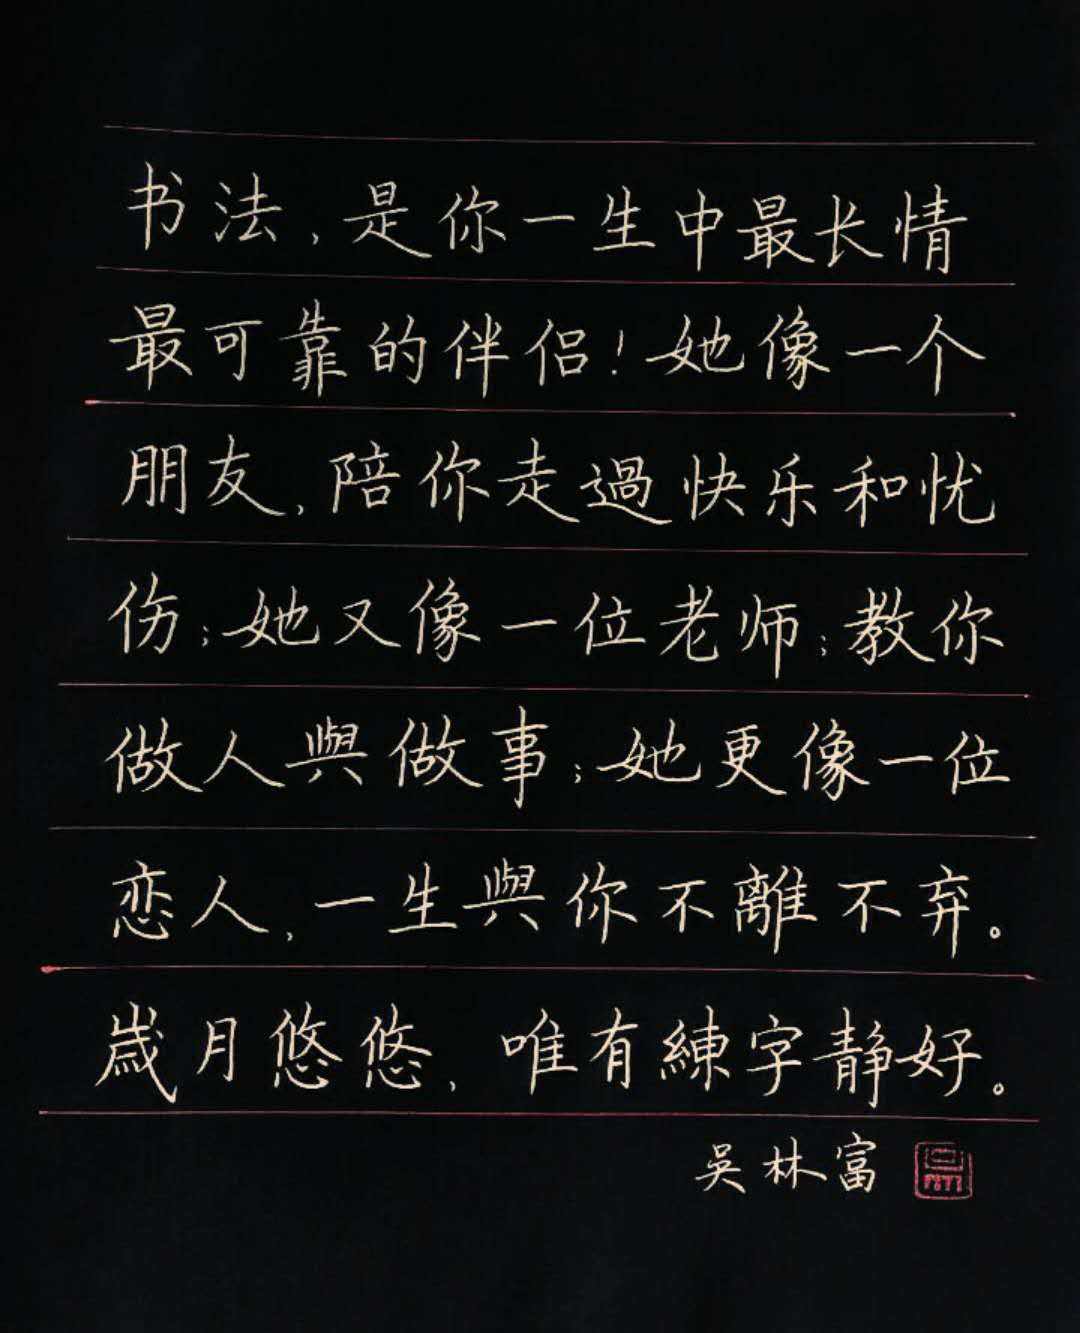 书法，是你一生中最长情
最可靠的伴侣！她像一个
朋友，陪你走過快乐和忧
伤；她又像一位老师；教你
做人與做事；她更像一位
恋人，一生與你不離不弃。
歲月悠悠，唯有練字静好。
吴林富